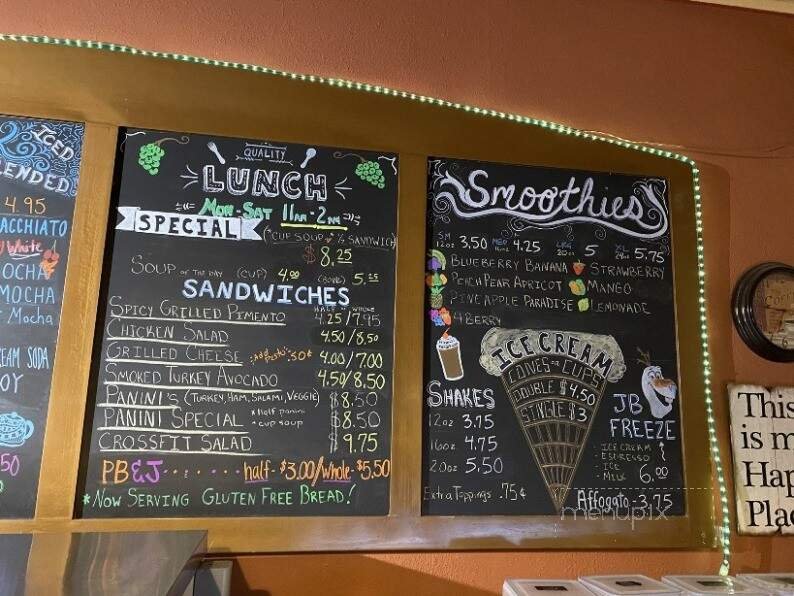 ICED
BLENDED
4.95
ACCHIATO
White
OCHA
MOCHA
Mocha
EAM SODA
OY
50
QUALITY
LUNCH
MON-SAT 11AM-2PM
SPECIAL (*CUP SOUP & ½ SANDWICH)
$8.25
SOUP OF THE DAY (CUP) 4.00 (BOWL) 5.25
SANDWICHES
HALF WHOLE
SPICY GRILLED PIMENTO 4.25/7.95
CHICKEN SALAD 4.50/8.50
GRILLED CHEESE *Add Pesto: 50¢ 4.00/7.00
SMOKED TURKEY AVOCADO 4.50/8.50
PANINI'S (TURKEY, HAM, SALAMI, VEGGIE) $8.50
PANINI SPECIAL *Half panini *cup soup $8.50
CROSSFIT SALAD $9.75
PB&J....... half-$3.00/whole $5.50
*NOW SERVING GLUTEN FREE BREAD!
Smoothies
SM 12oz 3.50 MED 16oz 4.25 LRG 20oz 5 XL 24oz 5.75
BLUEBERRY BANANA STRAWBERRY
PEACH PEAR APRICOT MANGO
PINEAPPLE PARADISE LEMONADE
4BERRY
ICE CREAM
CONES OR CUPS
DOUBLE $4.50
SINGLE $3
SHAKES
12oz 3.75
16oz 4.75
20oz 5.50
Extra Toppings .75¢
JB
FREEZE
- ICE CREAM
- ESPRESSO
- ICE
- MILK 6.00
Affogato-3.75
menupix
This
is m
Hap
Plac